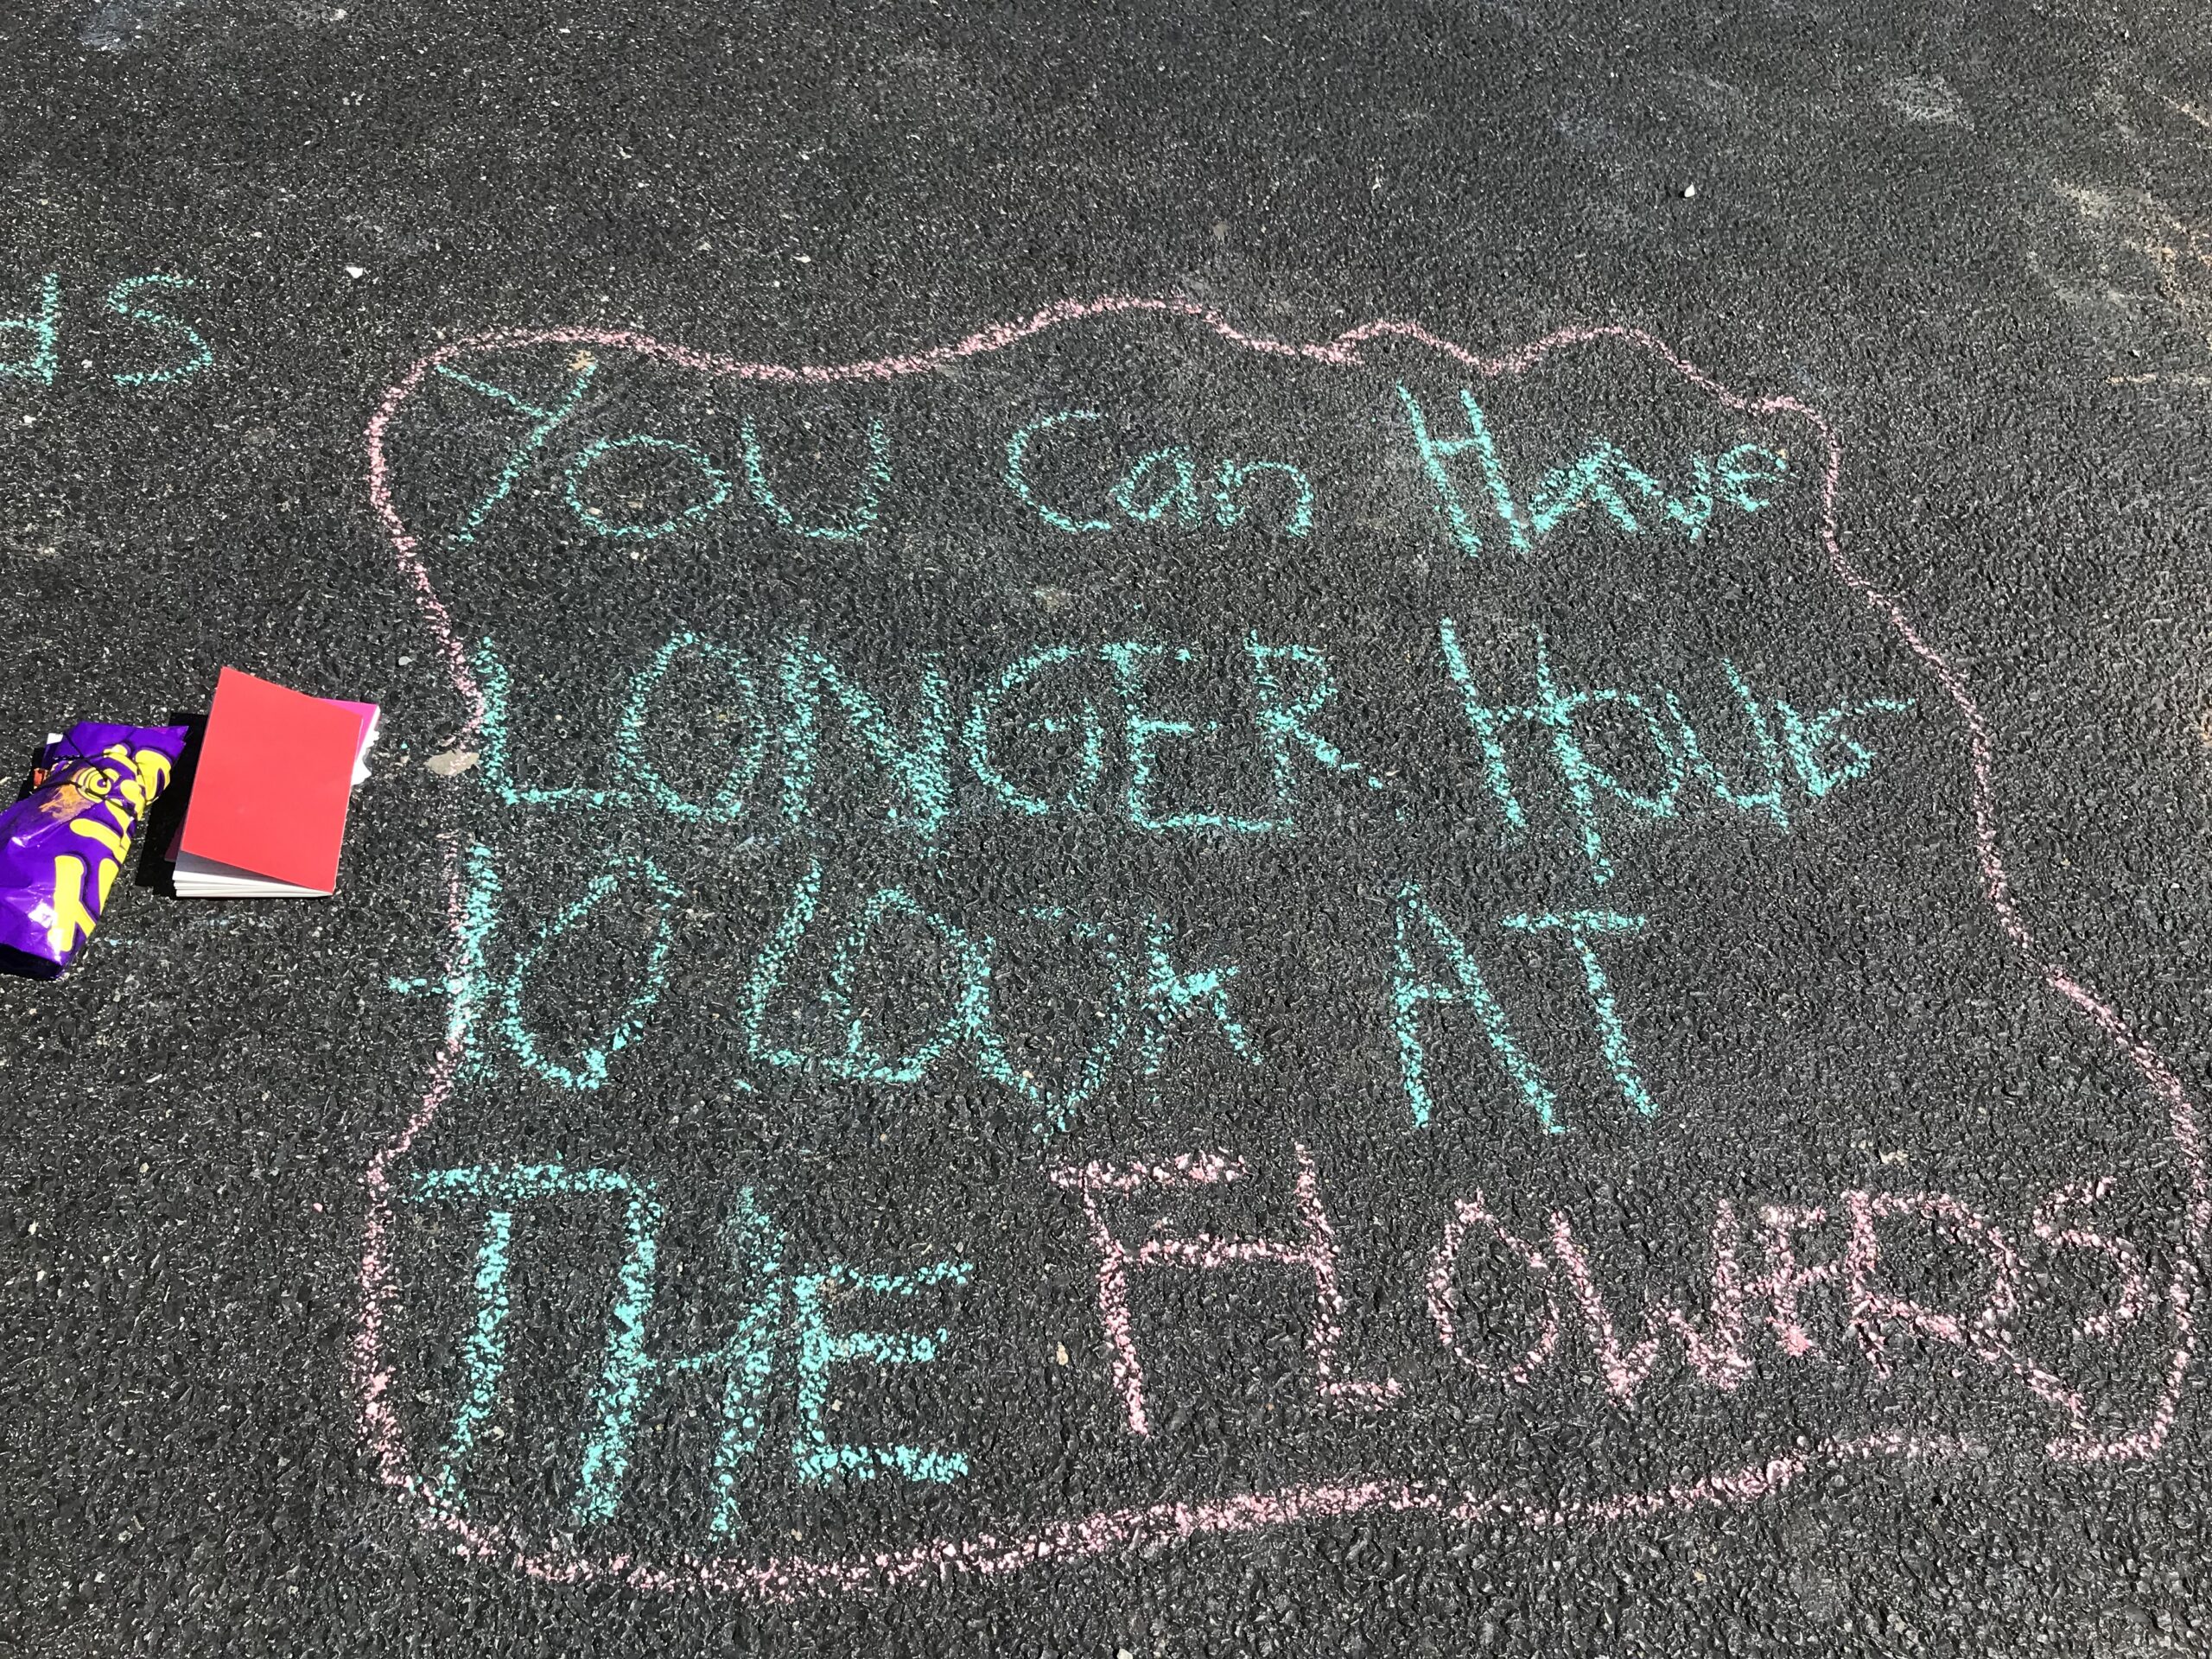 ds
You Can Have
LONGER Hour
to LOOK AT
THE FLOWERS